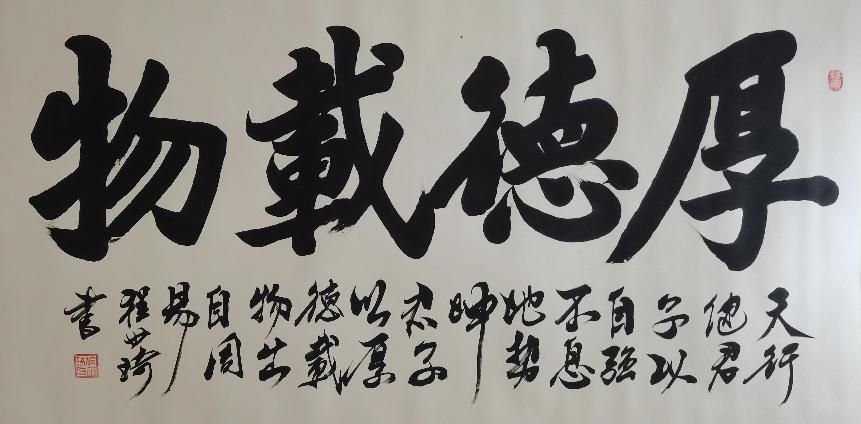 厚德載物
天行
健君
子以
自强
不息
地勢
坤
君子
以厚
德載
物出
自周
易
程世琦
書